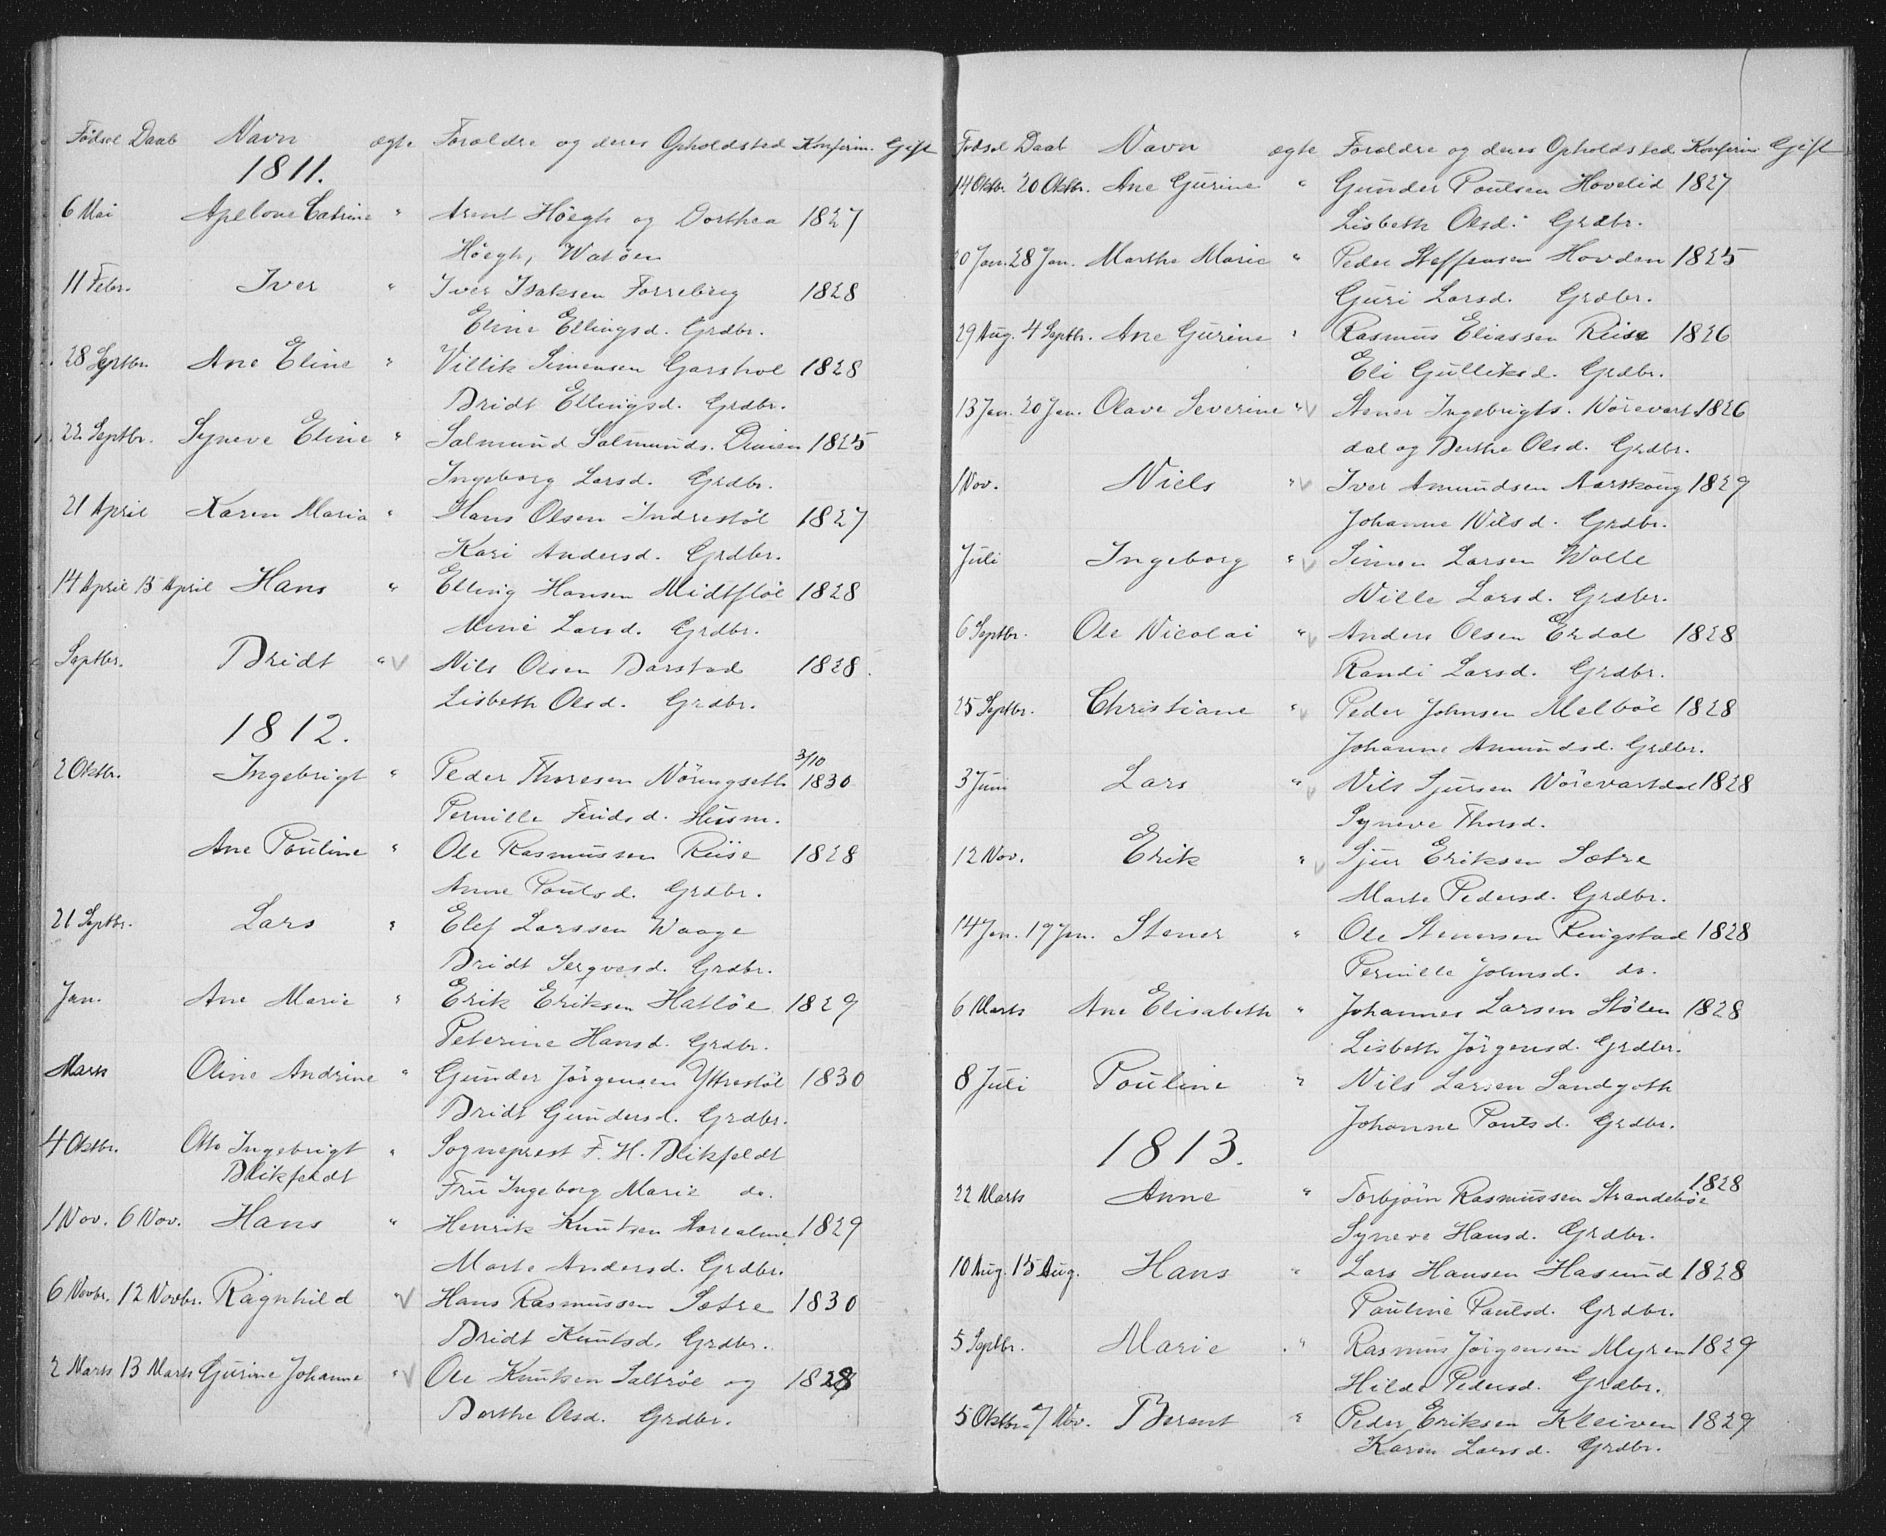 Fødsel Daab Navn ægte Forældre og deres Opholdsted Konfirm. Gift
1811.
6 Mai Apelone Catrine " Arnt Höegh og Dorthea 1827
Höegh, Watöen
11 Febr. Iver " Iver Isaksen Torrebrig 1828
Eline Ellingsd. Grdbr.
28 Septbr. Ane Eline " Villik Simensen Garshol 1828
Bridt Ellingsd. Grdbr.
22 Septbr. Syneve Eline " Salmund Salmunds. 1825
Ingeborg Larsd. Grdbr.
21 April Karen Maria " Hans Olsen Indrestöl 1827
Kari Andersd. Grdbr.
14 April 15 April Hans " Elling Hansen Midtflöe 1828
Larsd. Grdbr.
Septbr. Bridt " V Nils Olsen Barstad 1828.
Lisbeth Olsd. Grdbr.
1812.
3/10
2 Oktbr. Ingebrigt " Peder Thoresen Nöringseth 1830
Pernille Husm.
Ane Pouline " Ole Rasmussen Riise 1828
Anne Poulsd. Grdbr.
21 Septbr. Lars " Elef Larssen Waage
Bridt Grdbr.
Jan. Ane Marie " Erik Eriksen Hatlöe 1829
Peterine Hansd. Grdbr.
Marts Oline Andrine " Gunder Jörgensen Yttrestöl 1830
Bridt Gundersd. Grdbr.
4 Oktbr. Otto Ingebrigt " Sogneprest F. H. Blikfeldt
Blikfeldt
Fru Ingeborg Marie do.
1 Nov. 6 Nov. Hans " Henrik Knutsen 1829
Marte Andersd. Grdbr.
6 Novbr. 12 Novbr. Ragnhild " V Hans Rasmussen Sætre 1830
Bridt Knutsd. Grdbr.
2 Marts 13 Marts Gurine Johanne " V Ole Knutsen Saltröe og 1828
Berthe Olsd. Grdbr.
Fødsel Daab Navn ægte Forældre og deres Opholdsted Konfirm Gift
14 Oktbr. 20 Oktbr. Ane Gurine " Gunder Poulsen Hovelid 1827
Lisbeth Olsd. Grdbr.
20 Jan. 28 Jan. Marthe Marie " Peder Steffensen Hovden 1825
Guri Larsd. Grdbr.
29 Aug. 4 Septbr. Ane Gurine " Rasmus Eliassen Riise 1826
Eli Gulliksd. Grdbr.
13 Jan. 20 Jan. Olave Severine " V Stener Ingebrigts. Nörevarts 1826
dal og Berthe Olsd. Grdbr.
1 Nov. Niels " V Iver Amundsen Aarskoug 1829
Johanne Nilsd. Grdbr.
Juli Ingeborg " V Simen Larsen Wolle
Nille Larsd. Grdbr.
6 Septbr. Ole Nicolai " V Anders Olsen Erdal 1828
Randi Larsd. Grdbr.
25 Septbr. Christiane " V Peder Johnsen Melböe 1828
Johanne Amundsd. Grdbr.
3 Juni Lars " V Nils Sjursen Nörevartdal 1828
Syneve Thorsd.
12 Nov. Erik " V Sjur Eriksen Sætre
Marte Pedersd. Grdbr.
14 Jan. 19 Jan. Stener " Ole Stenersen Ringstad 1828
Pernille Johnsd. do.
6 Marts Ane Elisabeth " Johannes Larsen Stölen 1828
Lisbeth Jörgensd. Grdbr.
8 Juli Pouline " Nils Larsen Landgoth
Johanne Poulsd. Grdbr.
1813.
22 Marts Anne " Torbjörn Rasmussen Strandeböe 1828
Syneve Hansd. Grdbr.
10 Aug. 15 Aug. Hans " Lars Hansen Hasund 1828
Pauline Paulsd. Grdbr.
5 Septbr. Marie " Rasmus Jörgensen Myren 1829
Hilde Pedersd. Grdbr.
5 Oktbr. 7 Nov. Berent " Peder Eriksen Kleiven 1829
Karen Larsd. Grdbr.